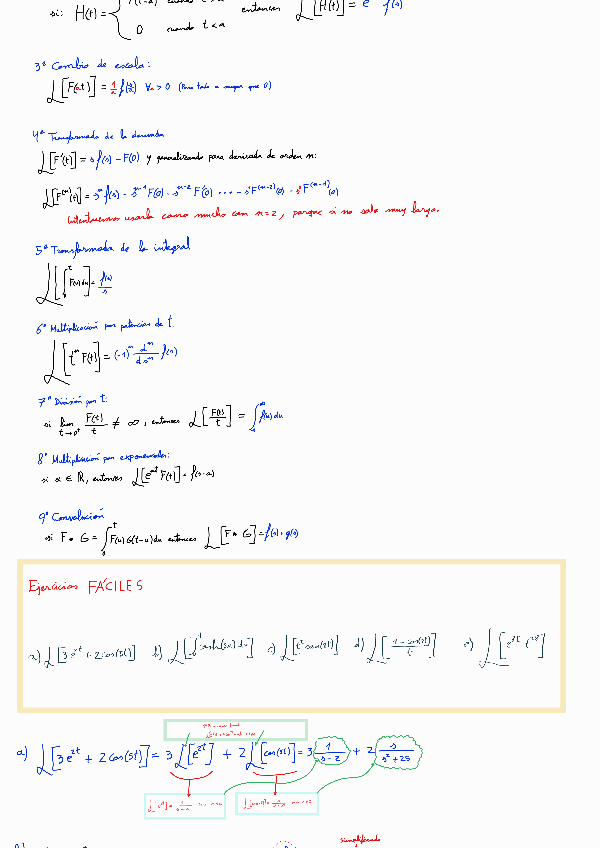 si: H(t) = { F(t-a) cuando t > a entonces ℒ[H(t)] = e f(s)
0 cuando t < a
3ª Cambio de escala:
ℒ[F(at)] = 1/a f(s/a) ∀a > 0 (Para todo a mayor que 0)
4ª Transformada de la derivada
ℒ[F'(t)] = s f(s) - F(0) y generalizando para derivada de orden n:
ℒ[F⁽ⁿ⁾(t)] = sⁿ f(s) - sⁿ⁻¹ F(0) - sⁿ⁻² F'(0) ... - s F⁽ⁿ⁻²⁾(0) - s⁰ F⁽ⁿ⁻¹⁾(0)
Intentaremos usarla como mucho con n=2, porque si no sale muy larga.
5ª Transformada de la integral
ℒ[∫ᵗ F(u)du] = f(s)/s
6ª Multiplicación por potencias de t.
ℒ[tⁿ F(t)] = (-1)ⁿ dⁿ/dsⁿ f(s)
7ª División por t:
si lim t→0⁺ F(t)/t ≠ ∞, entonces ℒ[F(t)/t] = ∫ₛ^∞ f(u)du
8ª Multiplicación por exponenciales:
si a ∈ ℝ, entonces ℒ[eᵃᵗ F(t)] = f(s-a)
9ª Convolución
si F * G = ∫₀ᵗ F(u)G(t-u)du entonces ℒ[F * G] = f(s) · g(s)
Ejercicios FÁCILES
a) ℒ[3e²ᵗ + 2cos(5t)] b) c) d) ℒ[(1-cos(5t))/t] e)
a) ℒ[3e²ᵗ + 2cos(5t)] = 3ℒ[e²ᵗ] + 2ℒ[cos(5t)] = 3 1/(s-2) + 2 s/(s²+25)
simplificado